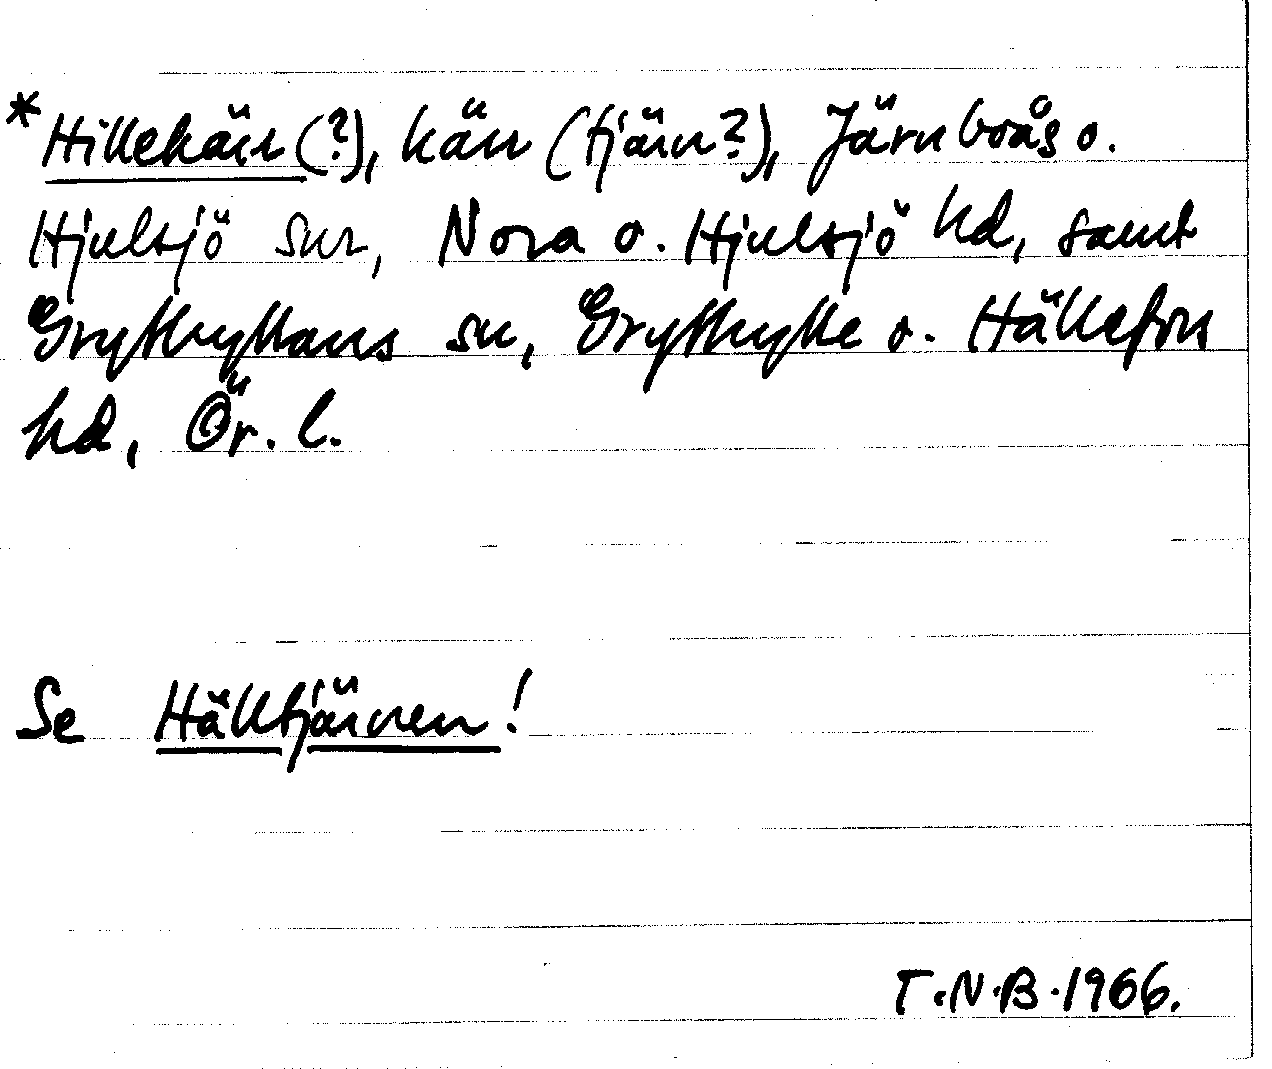 *Hillekärr (?), kärr (tjärn?), Järnboås o.
Hjulsjö snr, Nora o. Hjulsjö hd, samt
Grythyttans sn, Grythytte o. Hällefors
hd, Ör. l.
Se Hälltjärnen!
T.N.B. 1966.